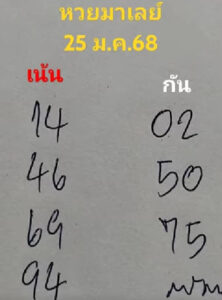 หวยมาเลย์
25 ม.ค.68
เน้น กัน
14 02
46 50
69 75
94